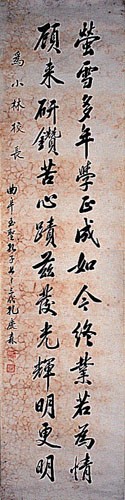 螢雪多年學正成如今終業若為情
顧来研鑽苦心蹟茲發光輝明更明
為小林校長
曲阜至聖孔子七十三代孔慶